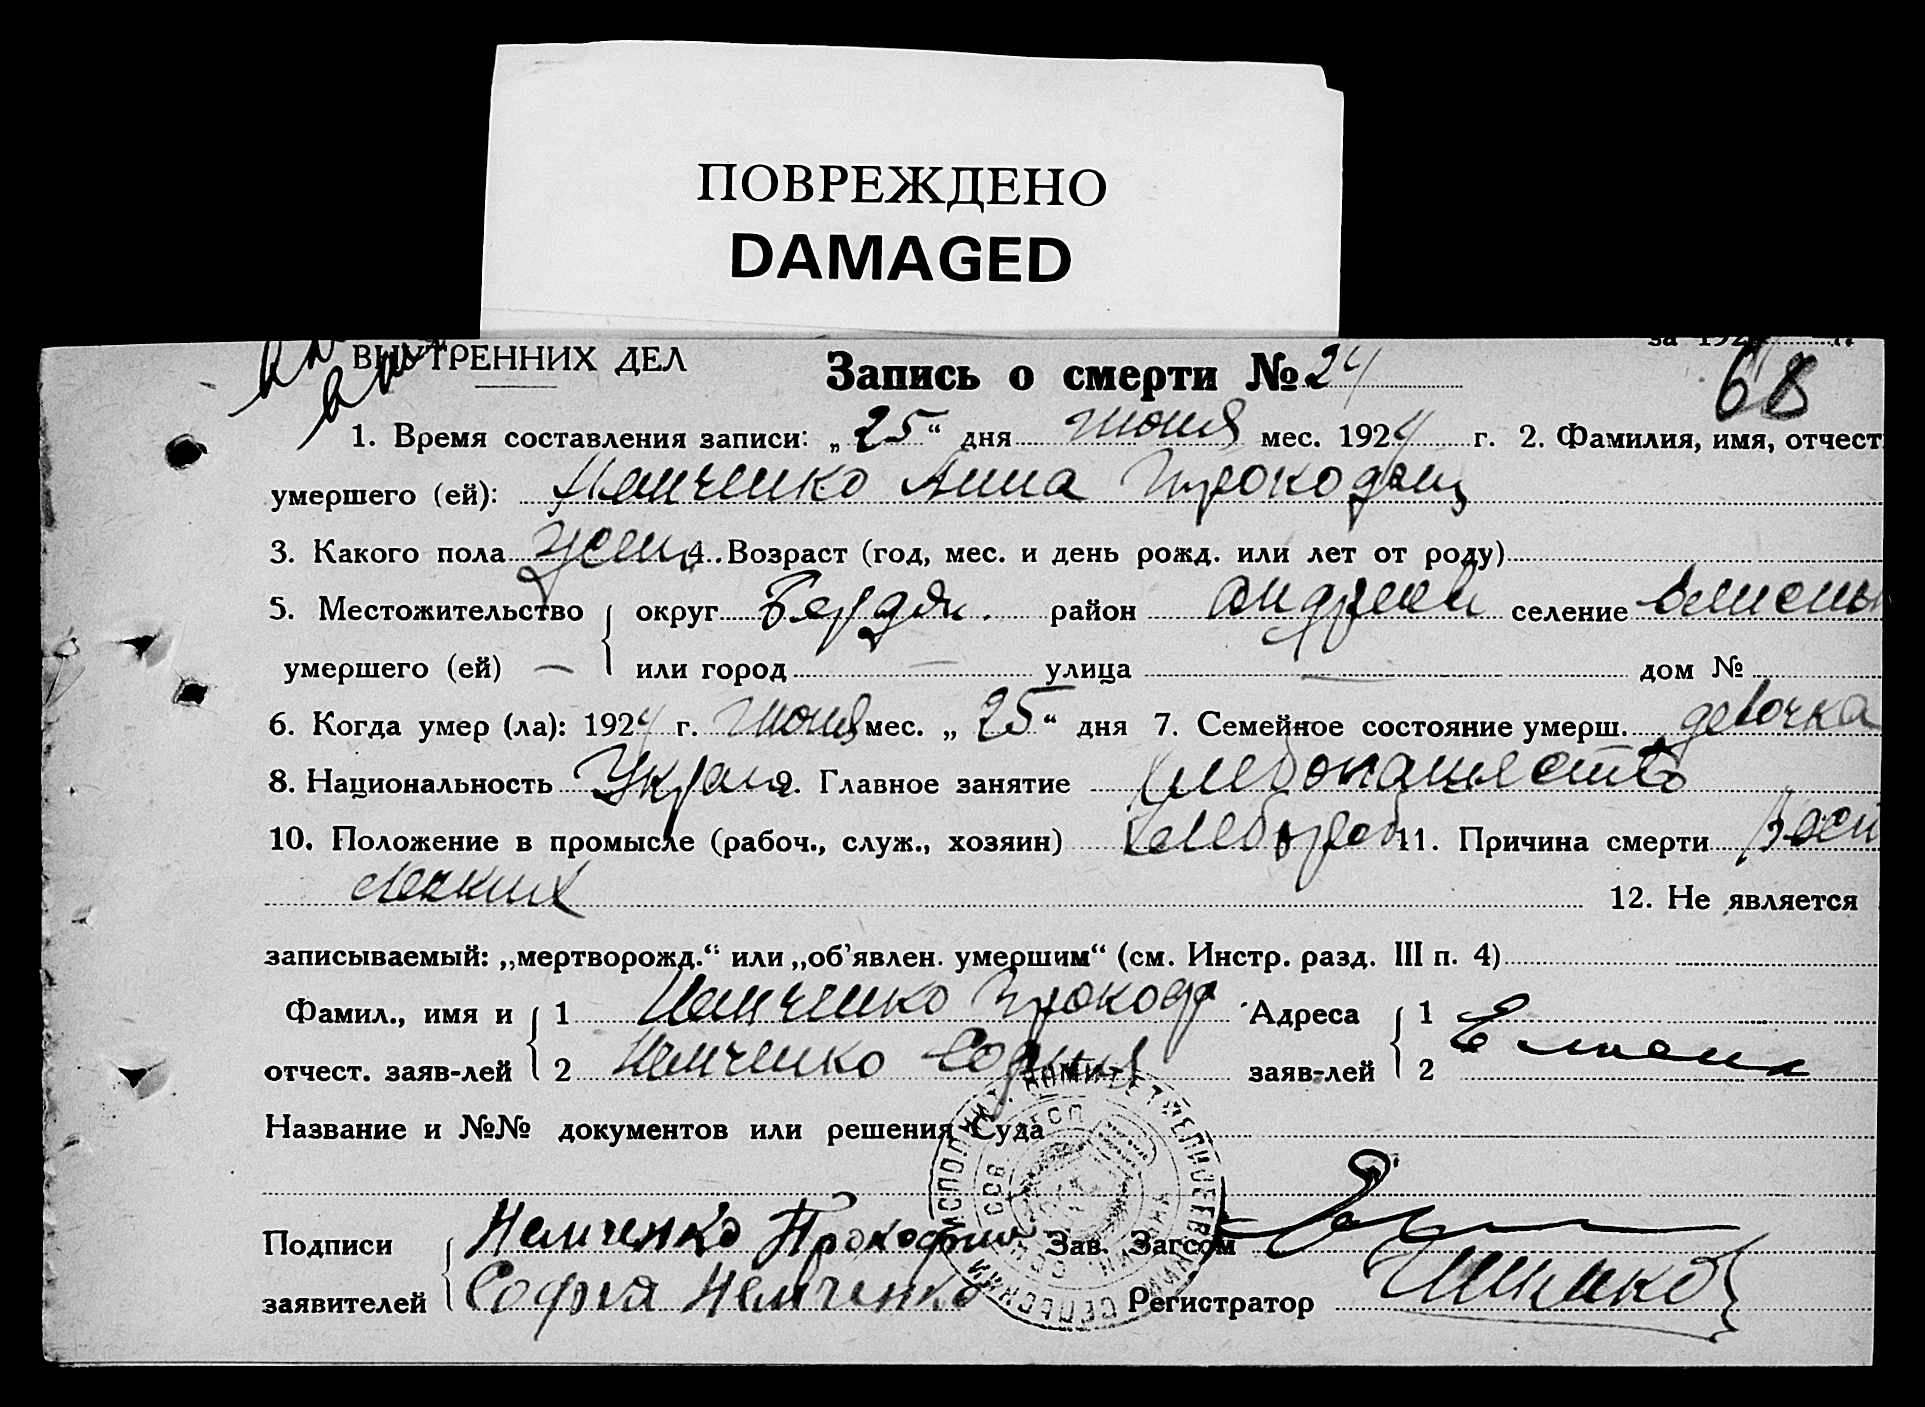 ПОВРЕЖДЕНО
DAMAGED
ВНУТРЕННИХ ДЕЛ
за 192 г.
Запись о смерти № 24
68
1. Время составления записи: „25“ дня июня мес. 1924 г. 2. Фамилия, имя, отчест
умершего (ей): Немченко Анна Прокоф
3. Какого пола жен 4. Возраст (год, мес. и день рожд. или лет от роду)
5. Местожительство округ Бердян. район Андреев селение
умершего (ей) — или город — улица — дом №
6. Когда умер (ла): 1924 г. июня мес. „25“ дня 7. Семейное состояние умерш. девочка
8. Национальность Украин 9. Главное занятие хлебопашество
10. Положение в промысле (рабоч., служ., хозяин) хлебороб 11. Причина смерти Восп
легких 12. Не является
записываемый: „мертворожд.“ или „об'явлен. умершим“ (см. Инстр. разд. III п. 4)
Фамил., имя и 1 Немченко Прокоф Адреса 1
отчест. заяв-лей 2 Немченко София заяв-лей 2
Название и №№ документов или решения Суда
Подписи Немченко Прокофий Зав. Загсом
заявителей София Немченко Регистратор